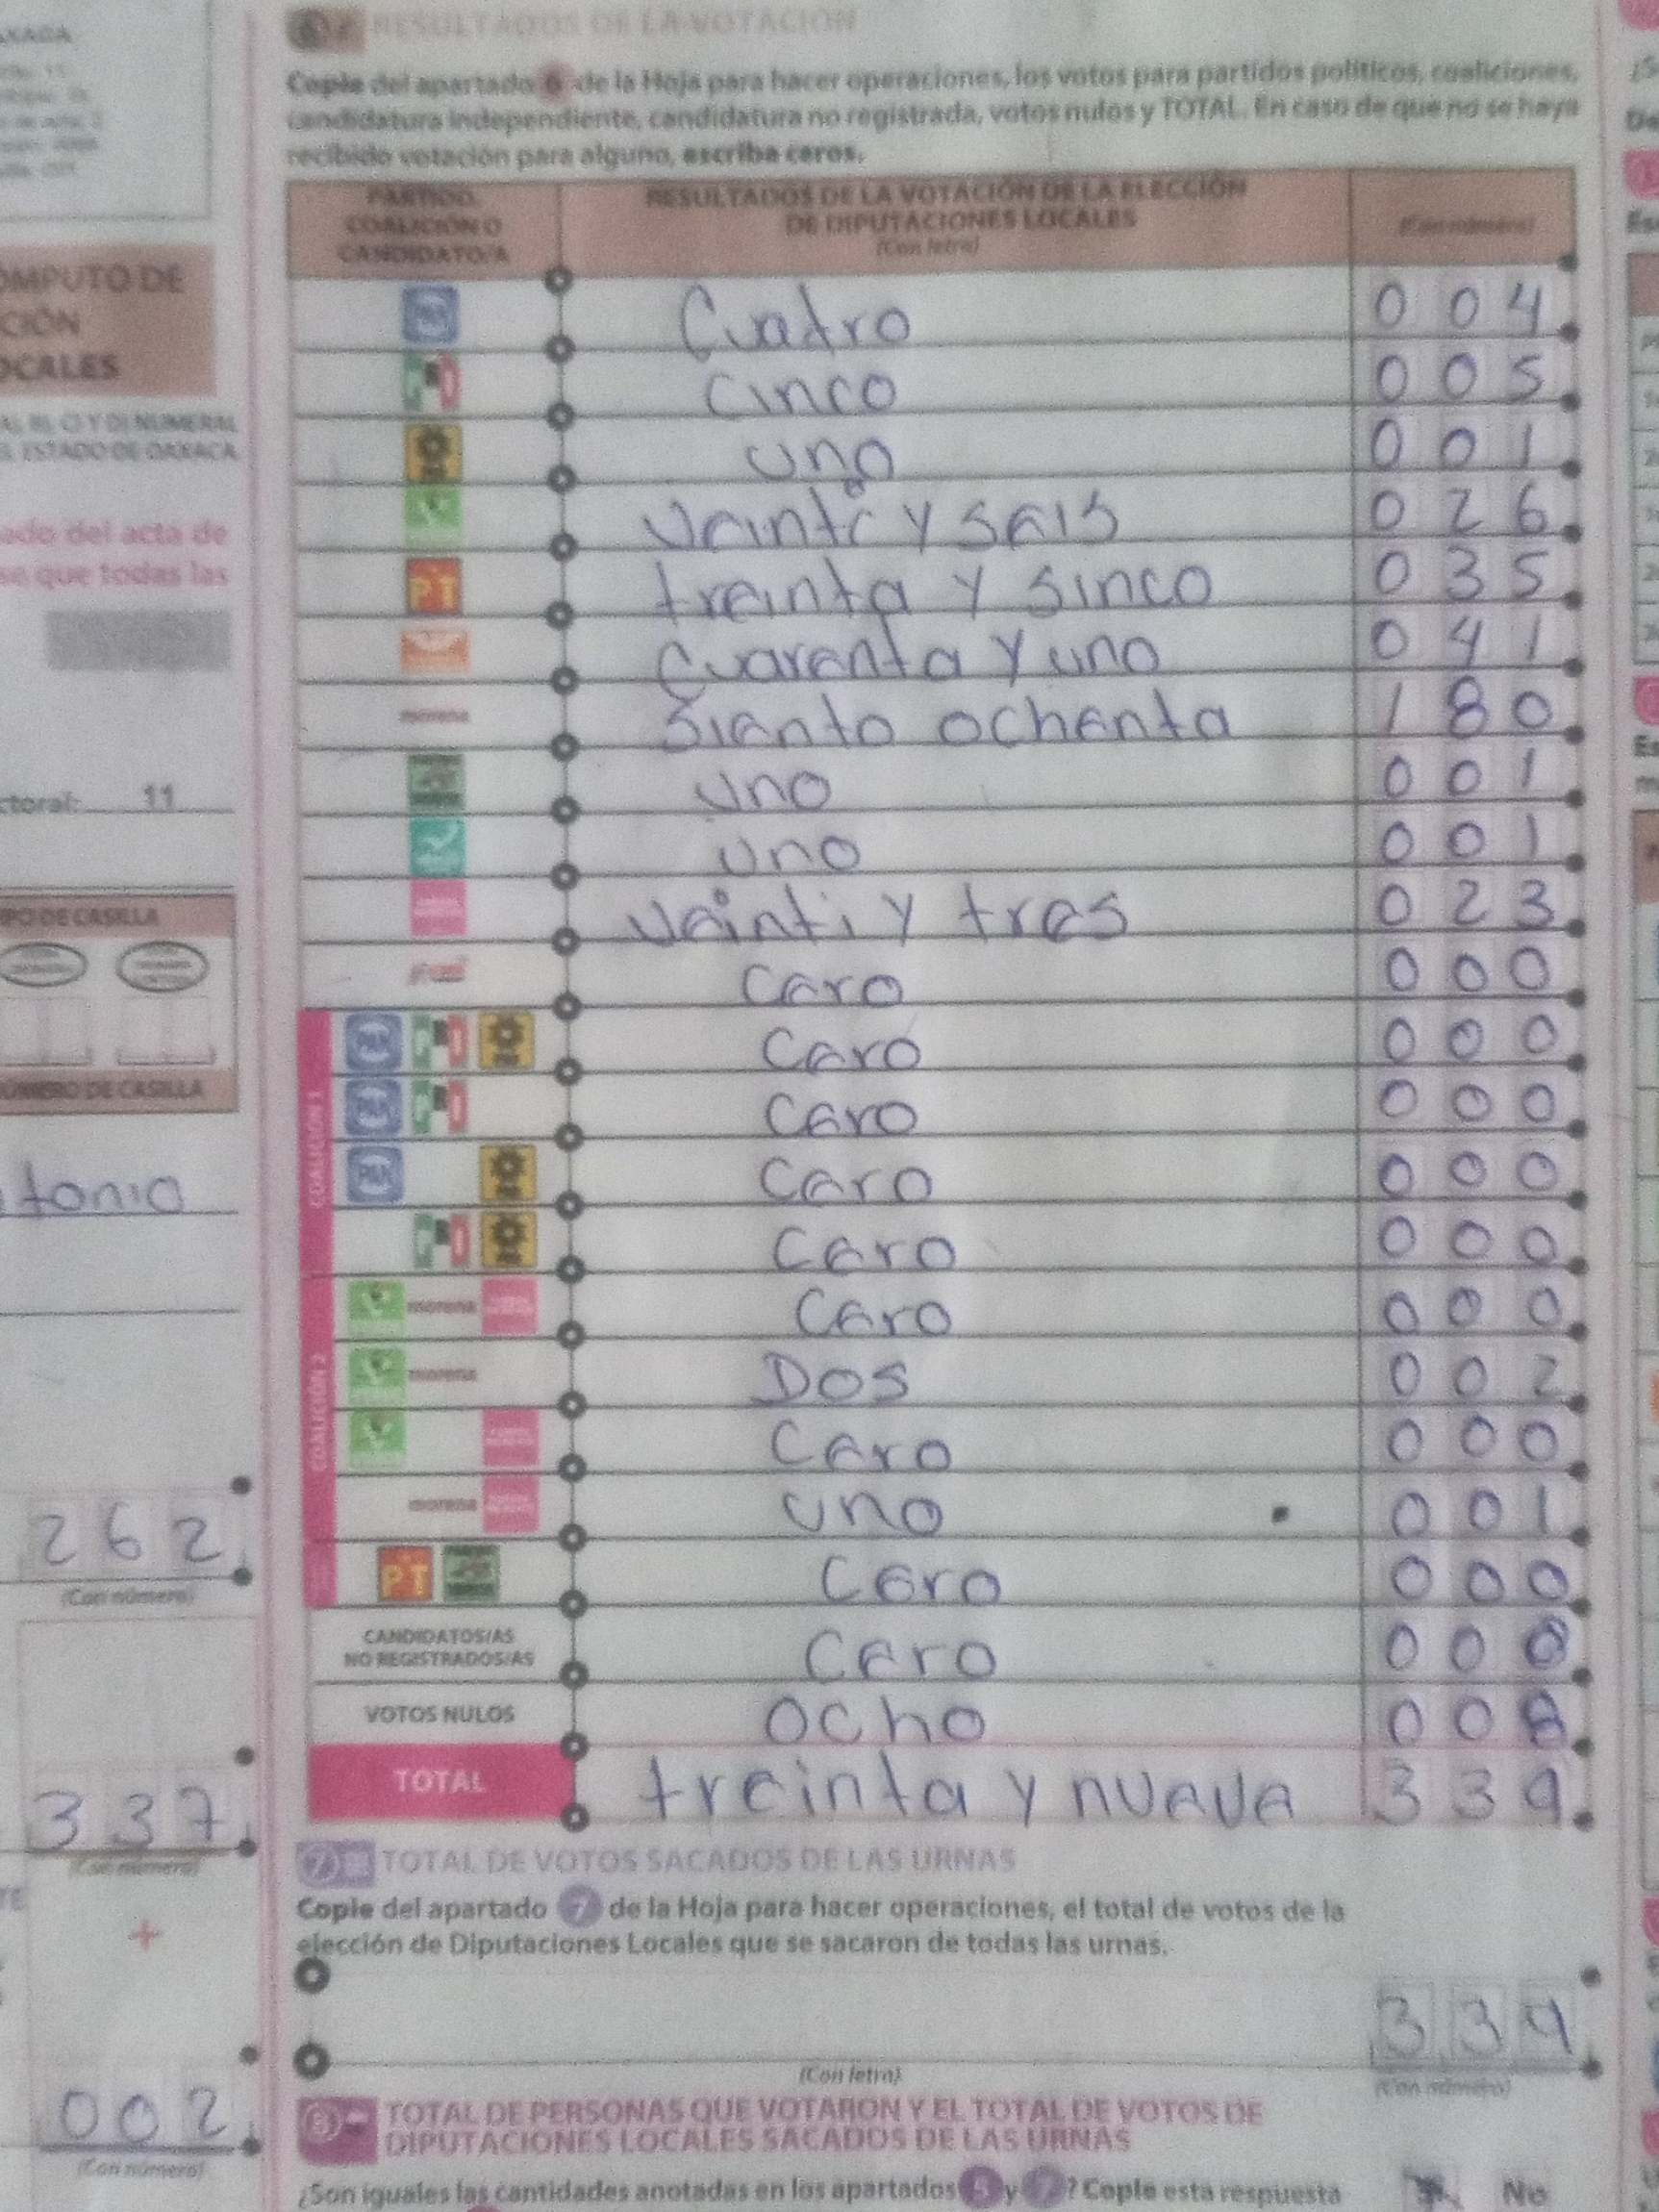 RESULTADOS DE LA VOTACIÓN
Copie del apartado 6 de la Hoja para hacer operaciones, los votos para partidos políticos, coaliciones,
candidatura independiente, candidatura no registrada, votos nulos y TOTAL. En caso de que no se haya
recibido votación para alguno, escriba ceros.
PARTIDO, COALICIÓN O CANDIDATO/A
RESULTADOS DE LA VOTACIÓN DE LA ELECCIÓN
DE DIPUTACIONES LOCALES
(Con letra)
(Con número)
Cuatro 004
Cinco 005
uno 001
Veinti y seis 026
PT treinta y sinco 035
Cuarenta y uno 041
morena Siento ochenta 180
uno 001
uno 001
Veinti y tres 023
Cero 000
COALICIÓN 1
Cero 000
Cero 000
Cero 000
Cero 000
COALICIÓN 2
morena Cero 000
morena Dos 002
Cero 000
morena uno 001
PT Cero 000
CANDIDATOS/AS
NO REGISTRADOS/AS Cero 000
VOTOS NULOS Ocho 008
TOTAL treinta y nueve 339
7 TOTAL DE VOTOS SACADOS DE LAS URNAS
Copie del apartado 7 de la Hoja para hacer operaciones, el total de votos de la
elección de Diputaciones Locales que se sacaron de todas las urnas.
339
(Con letra)
(Con número)
8 TOTAL DE PERSONAS QUE VOTARON Y EL TOTAL DE VOTOS DE
DIPUTACIONES LOCALES SACADOS DE LAS URNAS
¿Son iguales las cantidades anotadas en los apartados 5 y 7? Copie esta respuesta
No
AXACA
ÓMPUTO DE
CIÓN
OCALES
Y DEL NUMERAL
ESTADO DE OAXACA
ado del acta de
se que todas las
ctoral: 11
TIPO DE CASILLA
NÚMERO DE CASILLA
tonio
262
(Con número)
337
(Con número)
+
002
(Con número)